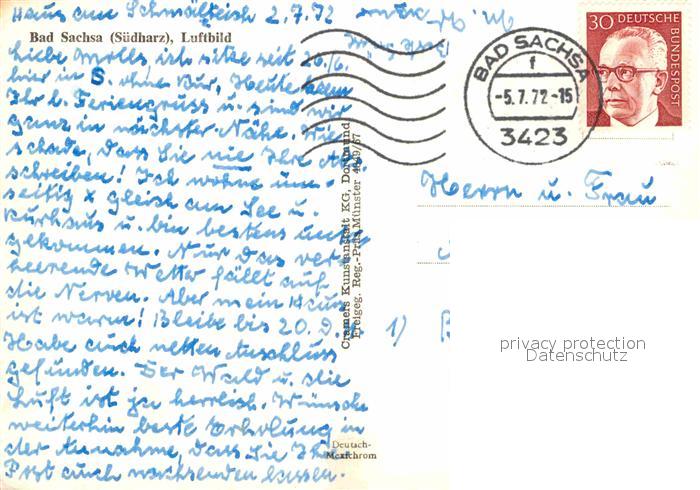 Haus am Schmelzteich 2.7.72
Bad Sachsa (Südharz), Luftbild
Liebe Molls, ich sitze seit 20./6.
hier in S. ohne Kur, Heute kam
Ihr l. Feriengruss u. sind wir
ganz in nächster Nähe. Wie
schade, dass Sie nie Ihre Ab.
schreiben! Ich wohne
seitig x gleich am See u.
Kurhaus u. bin bestens
gekommen. Nur das ver-
heerende Wetter fällt auf
die Nerven. Aber mein Haus
ist warm! Bleibe bis 20.
Habe auch netten Anschluss
gefunden. Der Wald u. die
Luft ist ja herrlich. Wünsche
weiterhin beste Erholung in
der Annahme, dass Sie Ihre
Post auch nachsenden lassen.
Cramers Kunstanstalt KG, Dortmund
Freigeg. Reg.-Präs. Münster 4849/67
Deutsch-
Mexichrom
BAD SACHSA
f
-5.7.72-15
3423
30 DEUTSCHE
BUNDESPOST
Herrn u. Frau
1)
privacy protection
Datenschutz